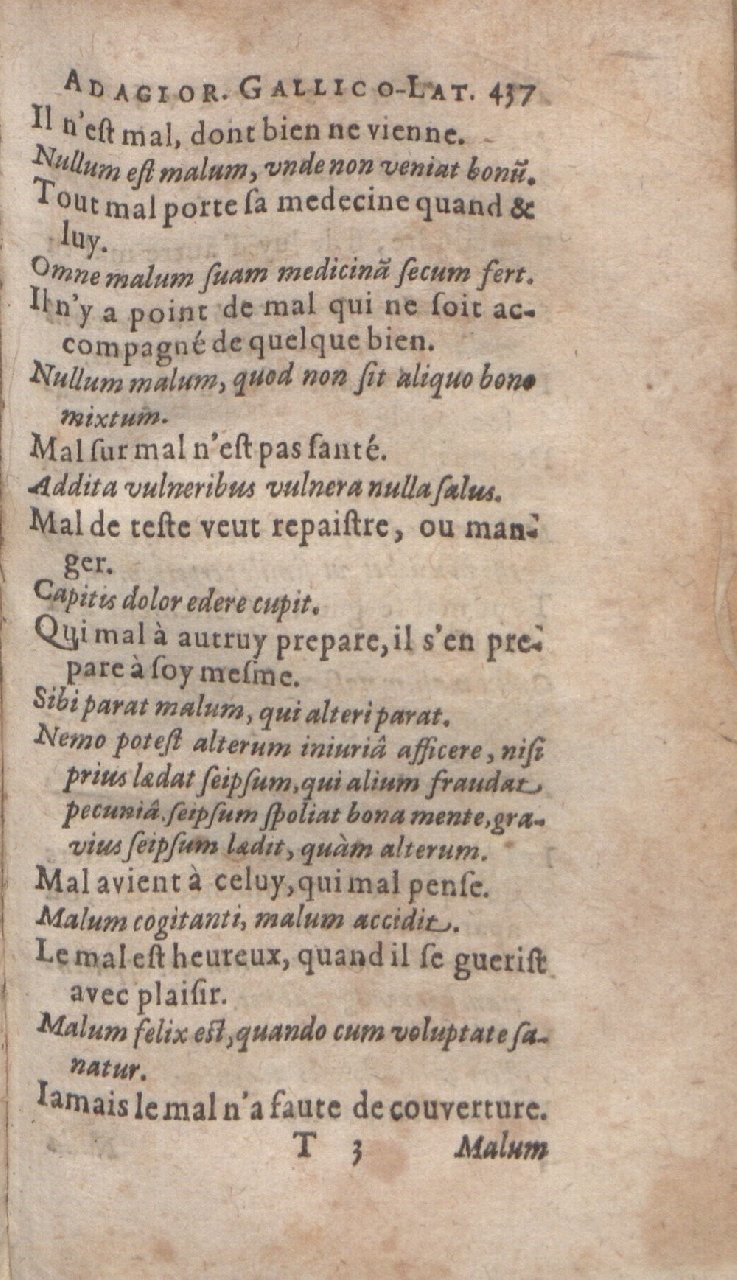 ADAGIOR. GALLICO-LAT. 437
Il n'eſt mal, dont bien ne vienne.
Nullum eſt malum, vnde non veniat bonũ.
Tout mal porte ſa medecine quand &
luy.
Omne malum ſuam medicinã ſecum fert.
Il n'y a point de mal qui ne ſoit ac-
compagné de quelque bien.
Nullum malum, quod non ſit aliquo bono
mixtum.
Mal ſur mal n'eſt pas ſanté.
Addita vulneribus vulnera nulla ſalus.
Mal de teſte veut repaiſtre, ou man-
ger.
Capitis dolor edere cupit.
Qui mal à autruy prepare, il s'en pre-
pare à ſoy meſme.
Sibi parat malum, qui alteri parat.
Nemo poteſt alterum iniuriâ afficere, niſi
prius lædat ſeipſum, qui alium fraudat
pecuniâ. ſeipſum ſpoliat bona mente, gra-
vius ſeipſum lædit, quàm alterum.
Mal avient à celuy, qui mal penſe.
Malum cogitanti, malum accidit.
Le mal eſt heureux, quand il ſe gueriſt
avec plaiſir.
Malum felix eſt, quando cum voluptate ſa-
natur.
Iamais le mal n'a faute de couverture.
T 3 Malum